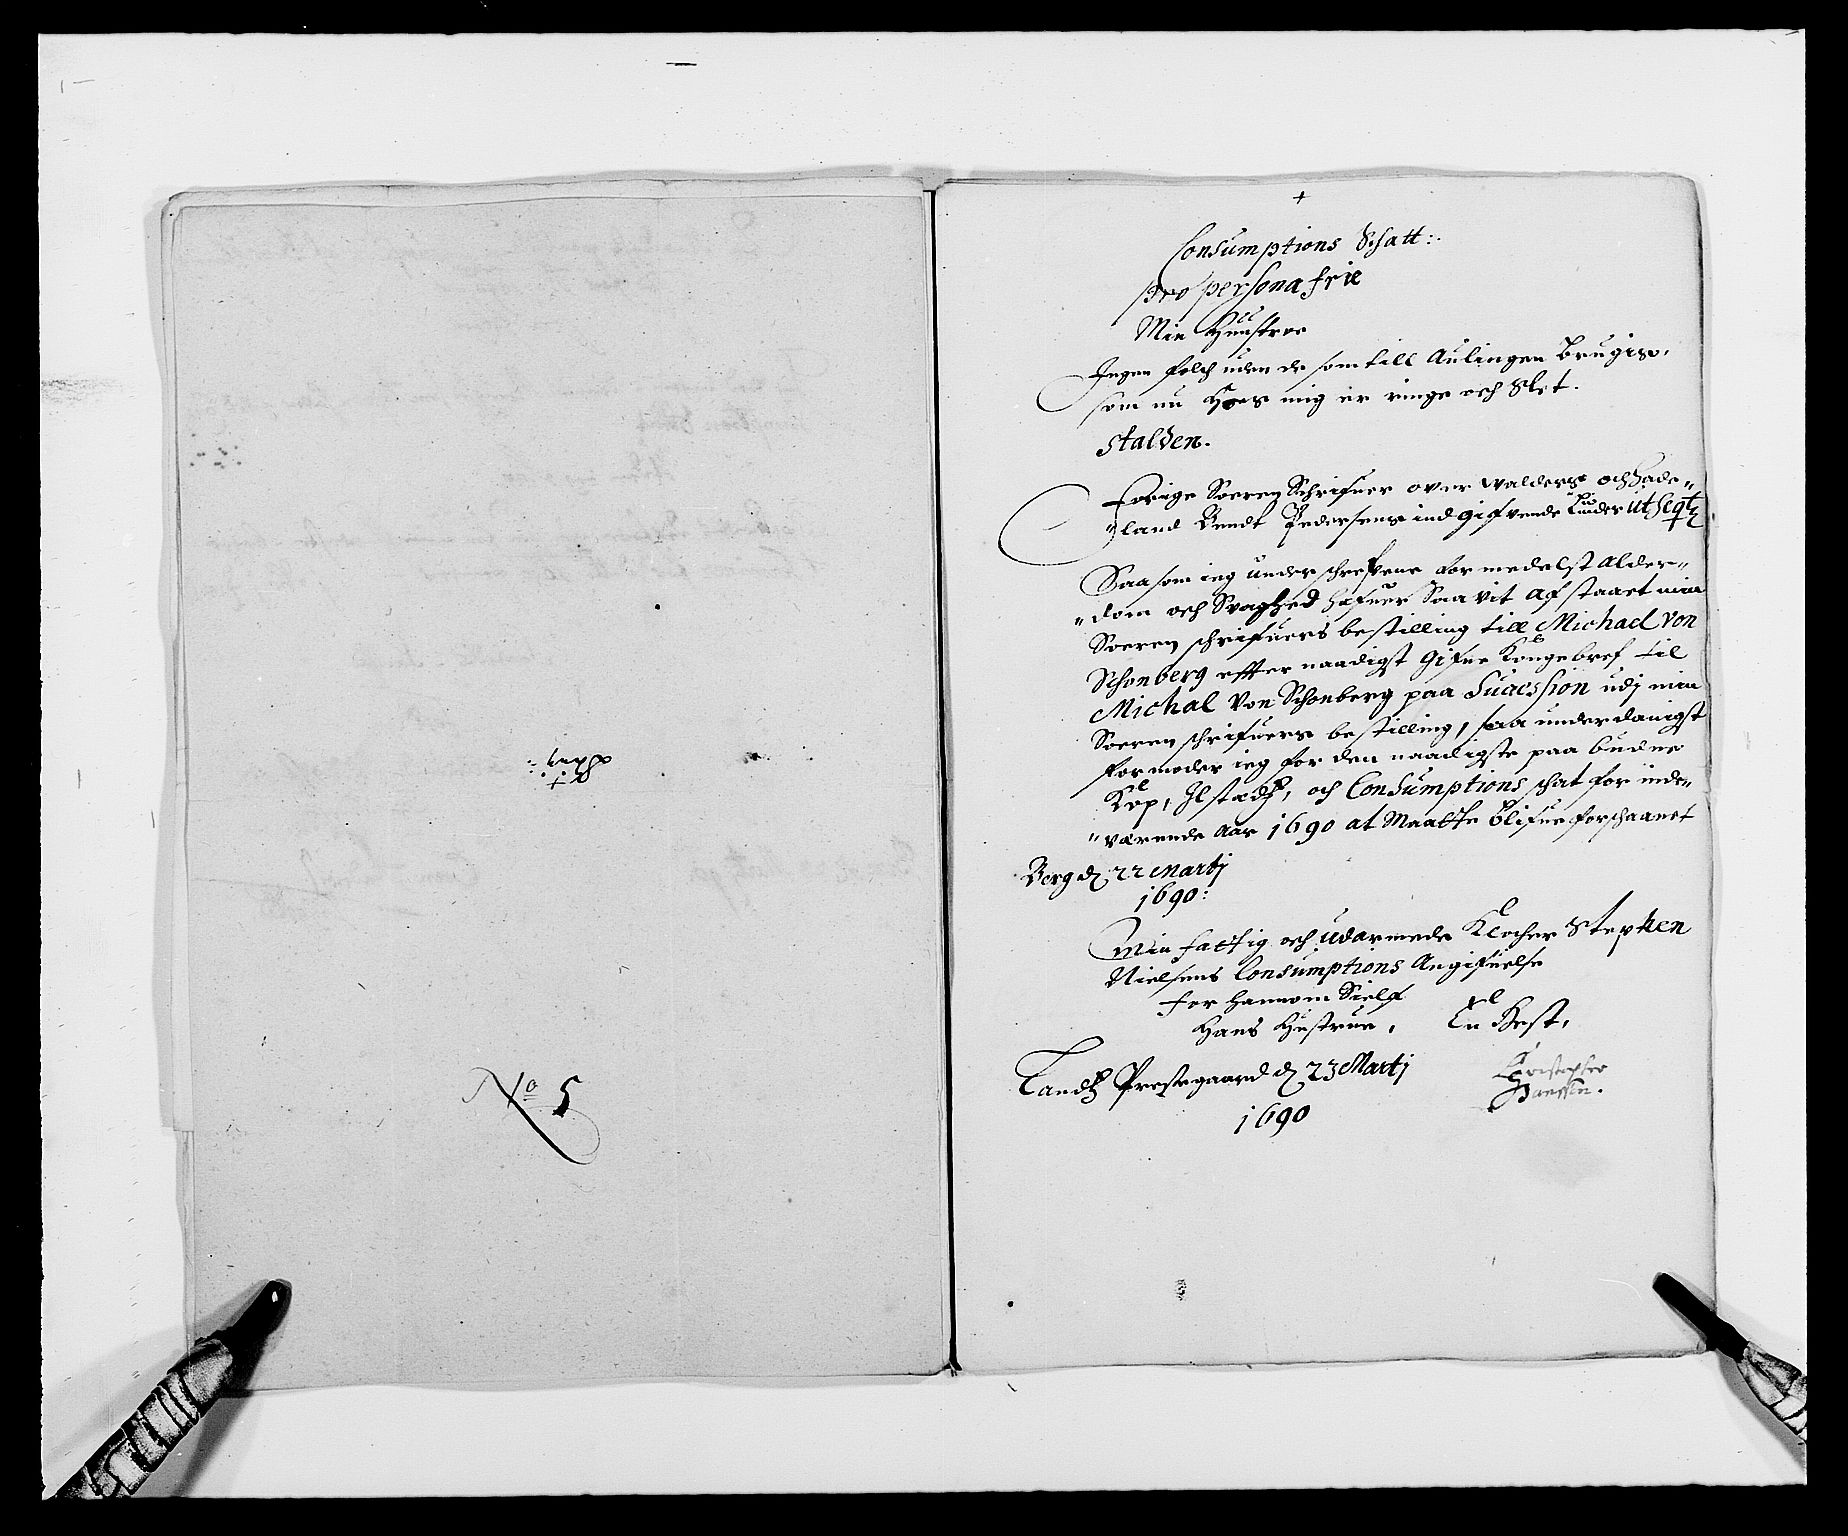 No 5
+
Consumptions Schatt:
pro persona frie
Min Huustroe
Ingen folch uden de som till Aulingen Brugis,
som nu Hoes mig er ringe och Slet.
Stalden.
Forige Soeren Schrifuer over Walders och Hade-
"land Bendt Pedersens ind gifvende Liuder ut Seqtz
Saasom ieg underschrefvene formedelst Alder-
"dom och Svaghed hafuer Saavit af staaet min
Soeren schrifuers bestilling till Michael von
Schonberg effter naadigst Gifne Kongebref til
Michal von Schonberg paa Suacssion udj min
Soeren schrifuers bestilling, saa underdanigst
formoder ieg for den naadigste paa budne
Kop, Ilstædz, och Consumptions schat for inde-
"værende Aar 1690 at Maatte blifue forschaanet
Berg dz 22 Martj
1690:
Min fattig och udarmede Klocher Stephen
Nielsens Consumptions Angifuelse
for hannom Sielf
Hans Hustrue, En Hest,
Landz Prestegaard dz 23 Martj
1690
Christopher
Hanssen.